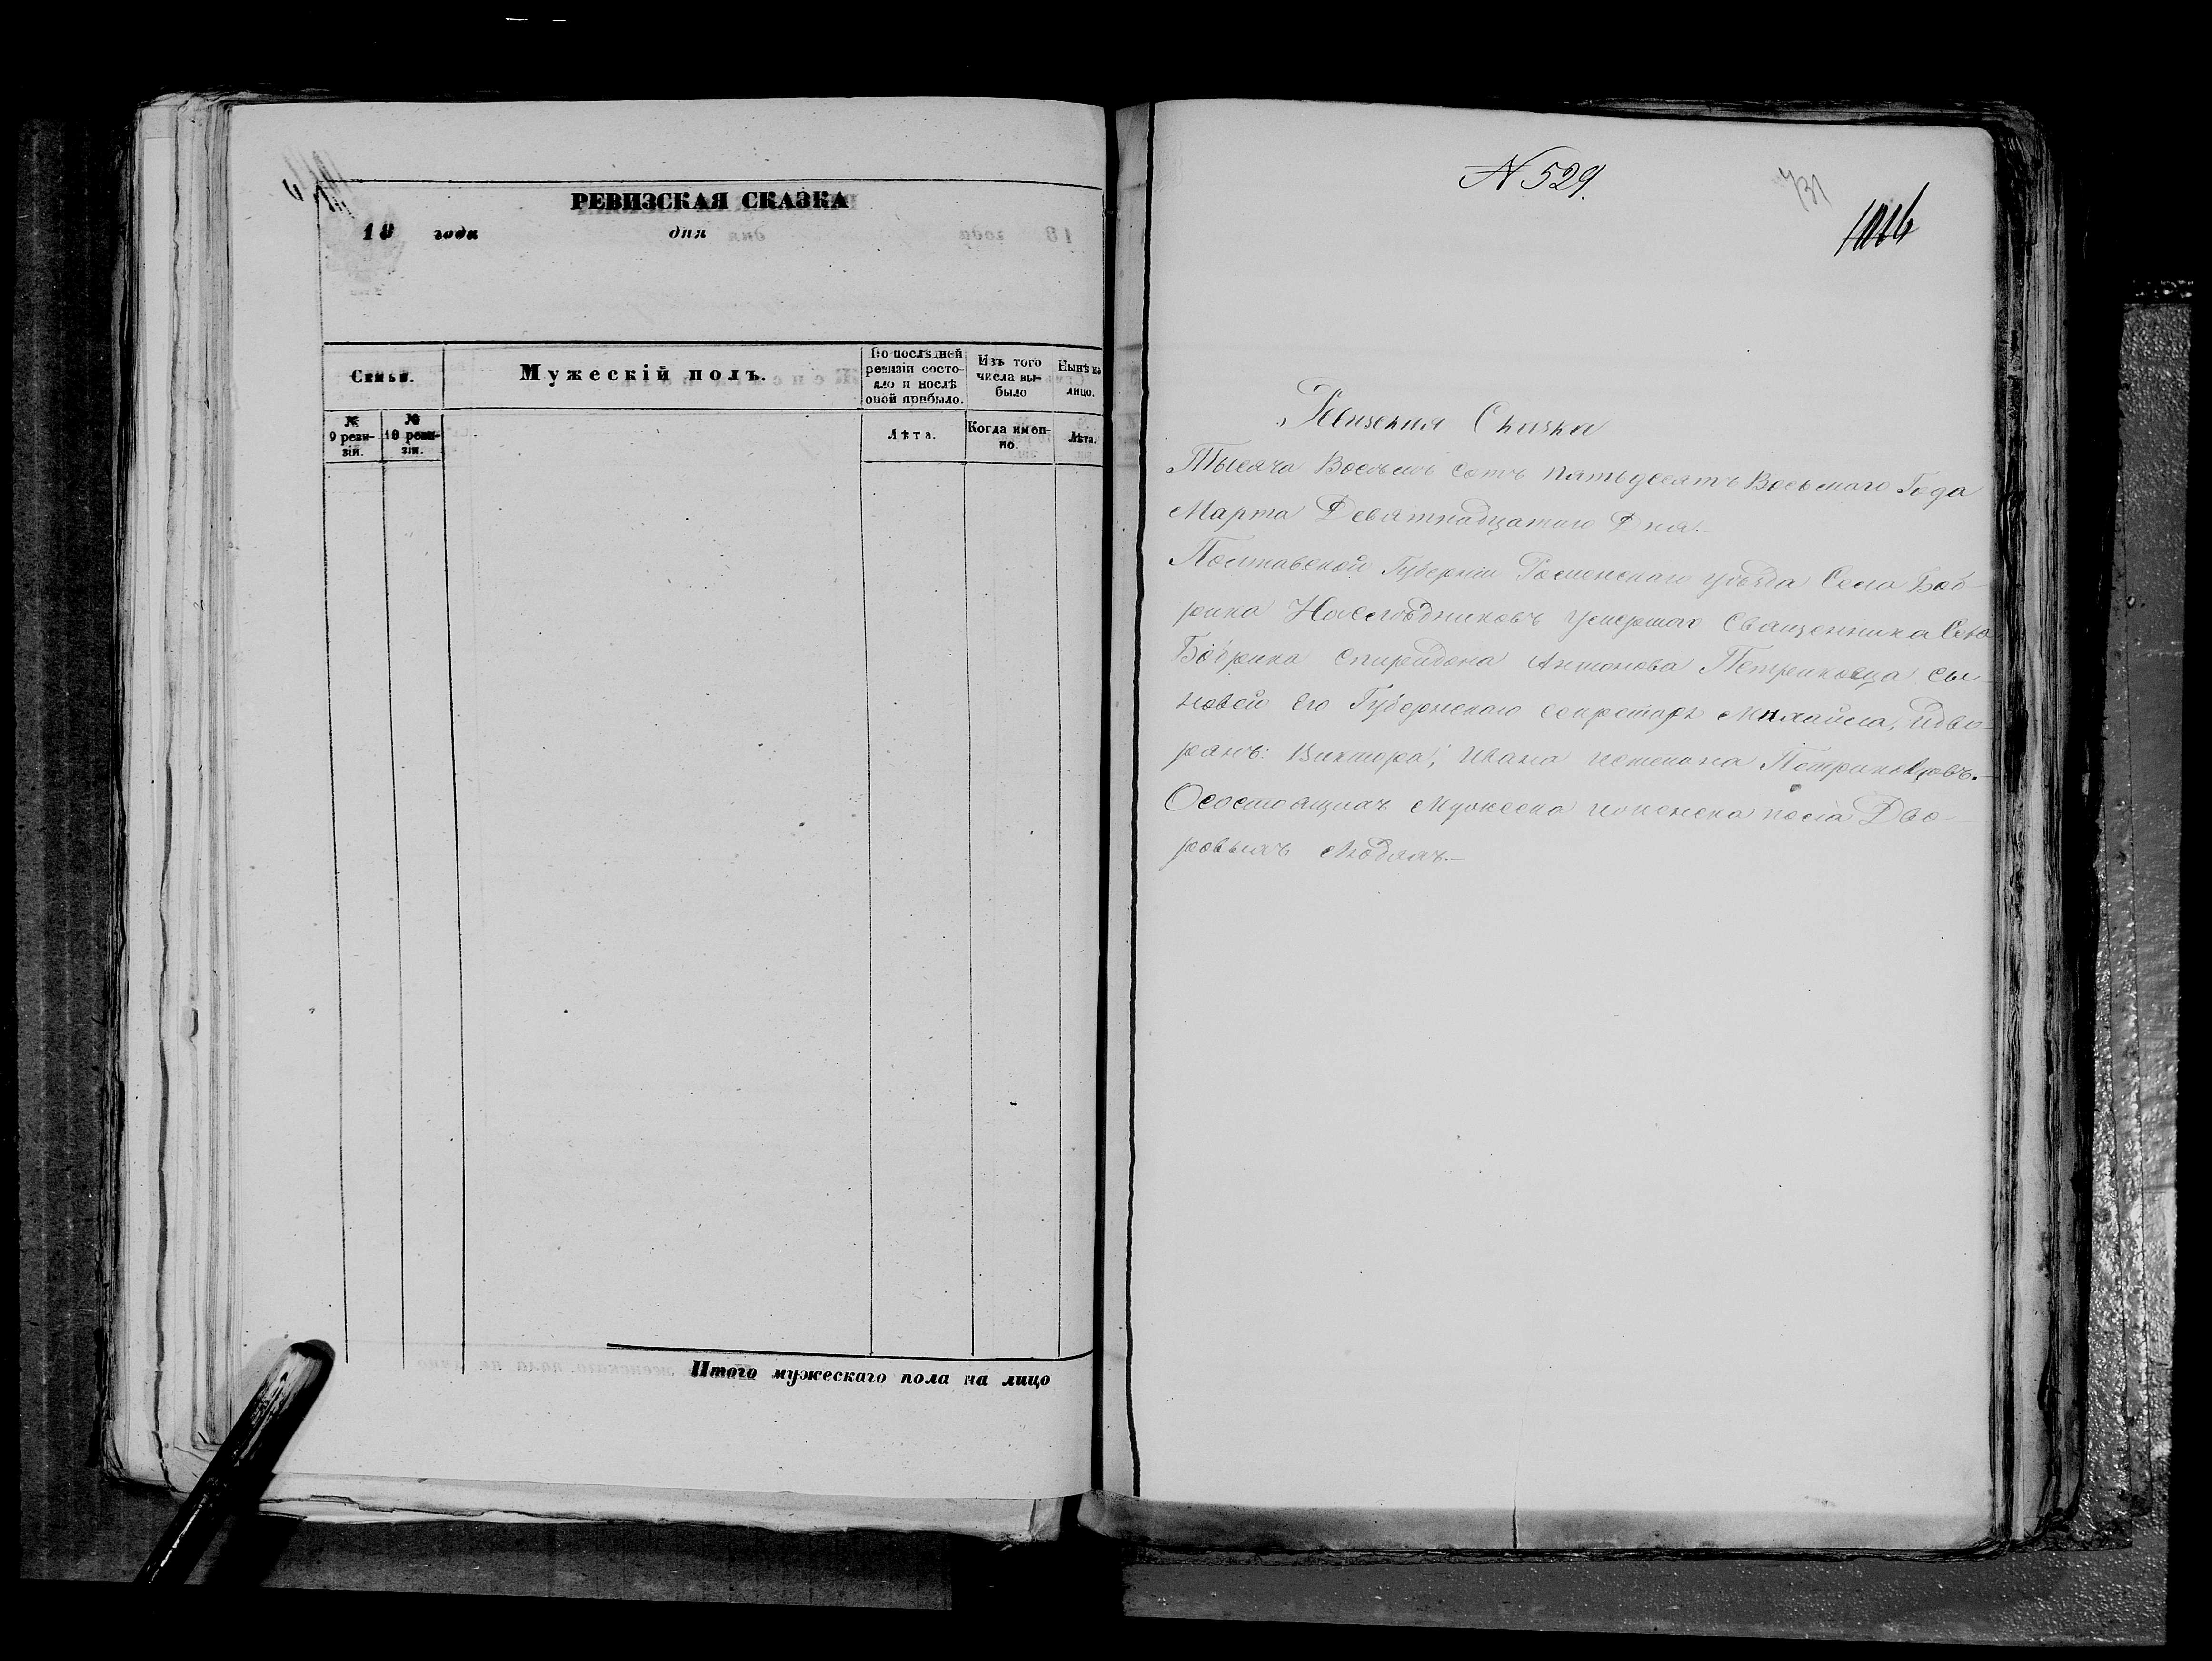 РЕВИЗСКАЯ СКАЗКА
18 года дня
Семьи.
Мужескій полъ.
По послѣдней ревизіи состояло и послѣ оной прибыло.
Изъ того числа выбыло
Нынѣ на лицо.
№ 9 ревизіи.
№ 10 ревизіи.
Лѣта.
Когда именно.
Лѣта.
Итого мужескаго пола на лицо
N 529.
731
Ревизская Сказка
Тысяча Восемь сотъ пятьдесятъ Восьмого Года
Марта Девятнадцатаго Дня.
Полтавской Губерніи Роменскаго уѣзда Села Боб-
рика Наслѣдниковъ умершаго Священника Села
Бобрика Спиридона Антонова Петренковца сы-
новей его Губернскаго секретаря Михайла, идво-
рянъ: Виктора, Ивана истепана Петренковцовъ.
Осостоящихъ Мужеска иженска пола Дво-
ровыхъ людяхъ.